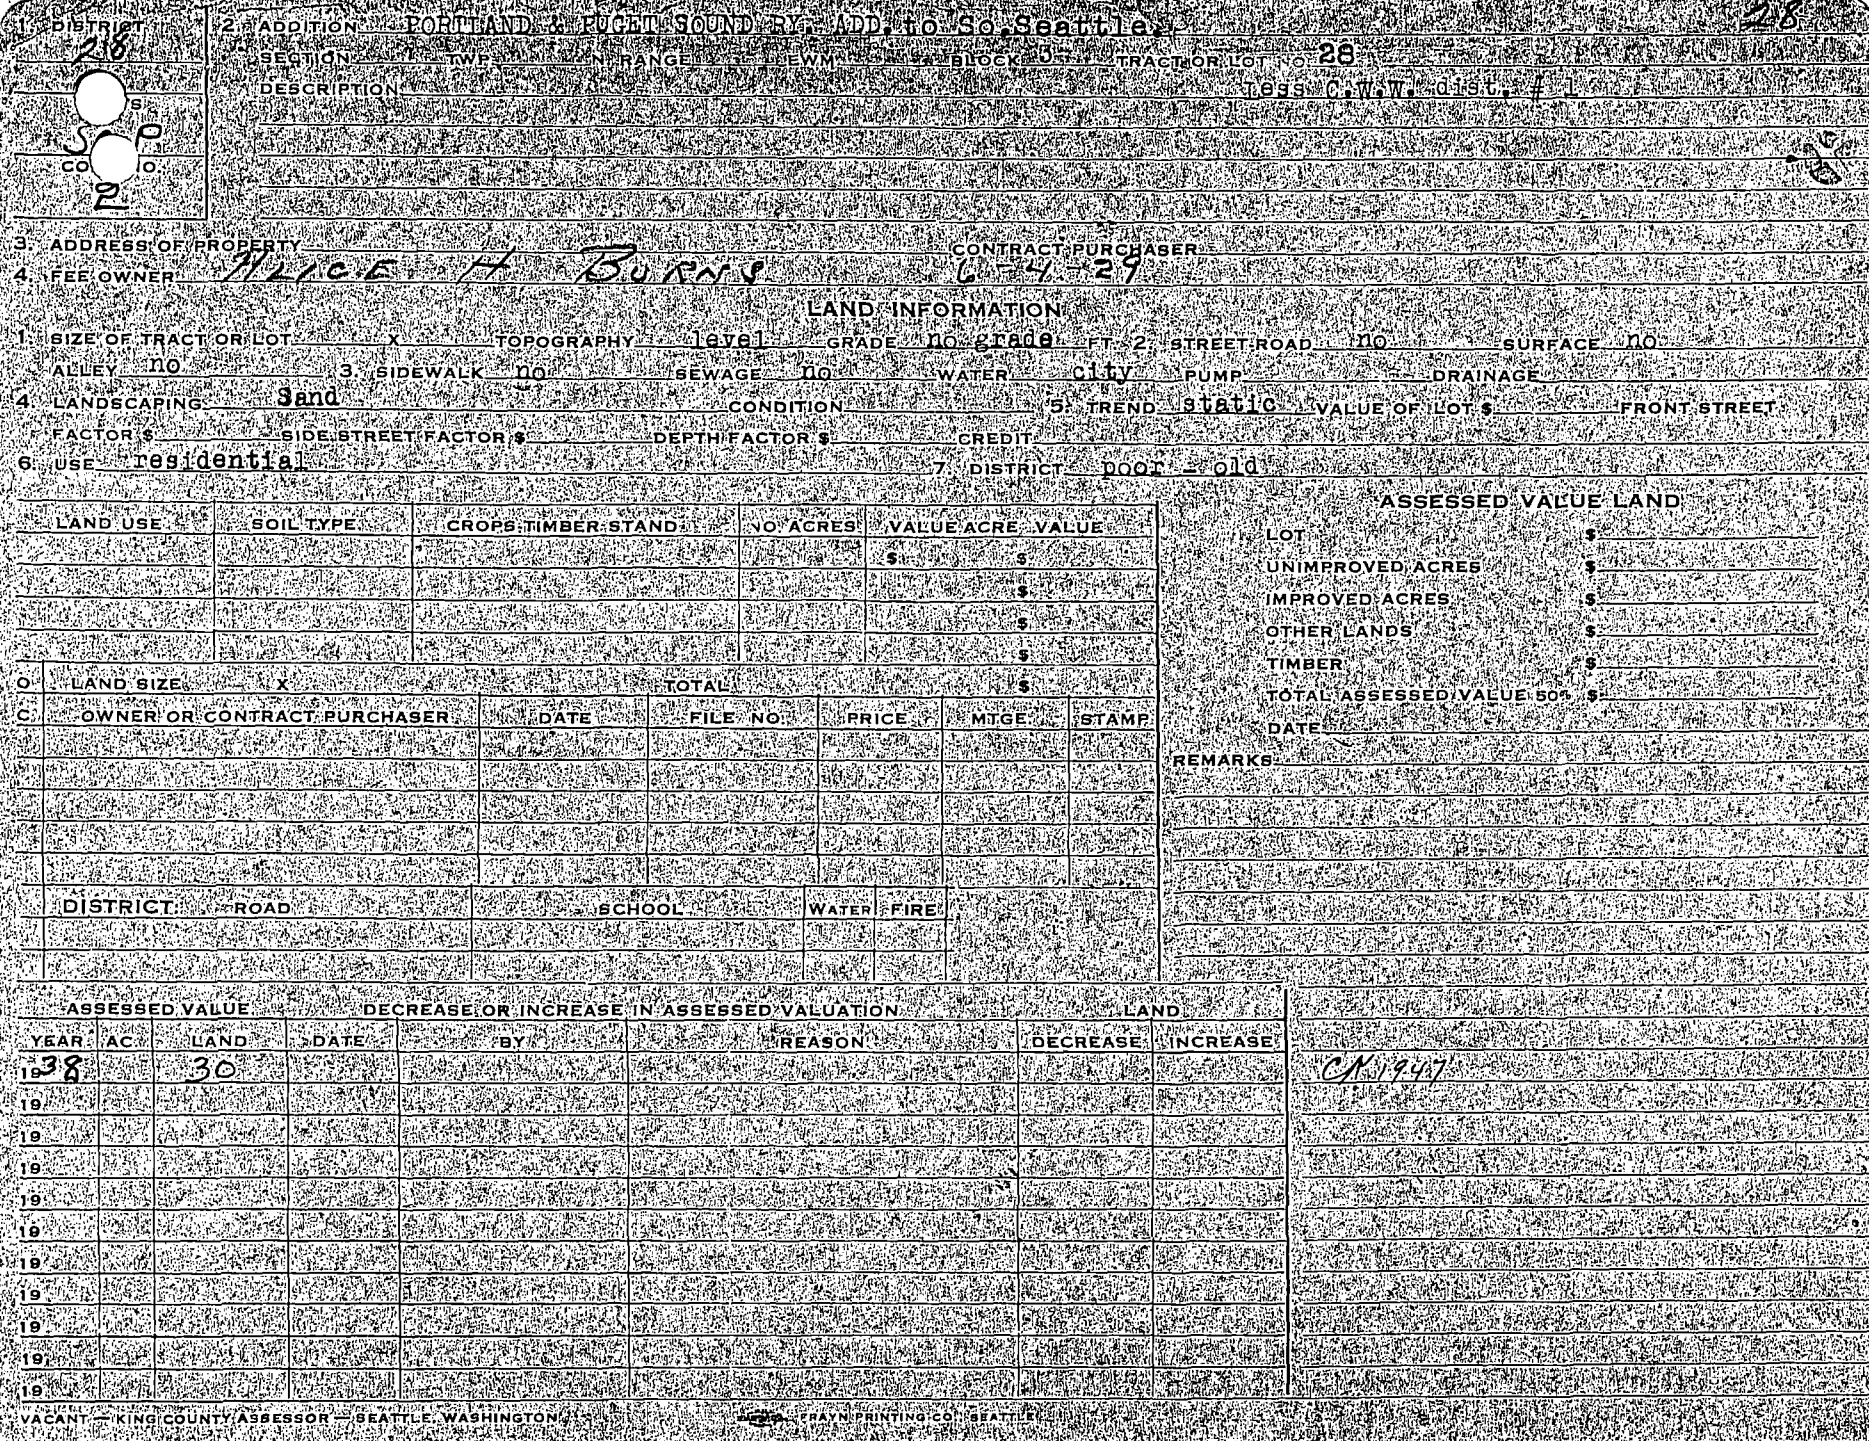 1. DISTRICT 2. ADDITION PORTLAND & PUGET SOUND RY. ADD. to So. Seattle. 28
28 SECTION TWP. N. RANGE EWM BLOCK TRACT OR LOT NO. 28
DESCRIPTION Less C.W.W. dist. # 1
S
S P
CO O.
2
3. ADDRESS OF PROPERTY CONTRACT PURCHASER
4. FEE OWNER ALICE H BURNS 6-4-29
LAND INFORMATION
1. SIZE OF TRACT OR LOT X TOPOGRAPHY level GRADE no grade FT. 2. STREET-ROAD no SURFACE no
ALLEY no 3. SIDEWALK no SEWAGE no WATER city PUMP DRAINAGE
4. LANDSCAPING Sand CONDITION 5. TREND static VALUE OF LOT $ FRONT STREET
FACTOR $ SIDE STREET FACTOR $ DEPTH FACTOR $ CREDIT
6. USE residential 7. DISTRICT poor - old
LAND USE SOIL TYPE CROPS-TIMBER-STAND NO. ACRES VALUE ACRE VALUE
$ $
$
$
$
O LAND SIZE X TOTAL $
C. OWNER OR CONTRACT PURCHASER DATE FILE NO. PRICE MTGE. STAMP
ASSESSED VALUE LAND
LOT $
UNIMPROVED ACRES $
IMPROVED ACRES $
OTHER LANDS $
TIMBER $
TOTAL ASSESSED VALUE 50% $
DATE
REMARKS
DISTRICT: ROAD SCHOOL WATER FIRE
ASSESSED VALUE DECREASE OR INCREASE IN ASSESSED VALUATION LAND
YEAR AC LAND DATE BY REASON DECREASE INCREASE
1938 30 1947
19
19
19
19
19
19
19
19
19
19
VACANT — KING COUNTY ASSESSOR — SEATTLE, WASHINGTON FRAYN PRINTING CO., SEATTLE